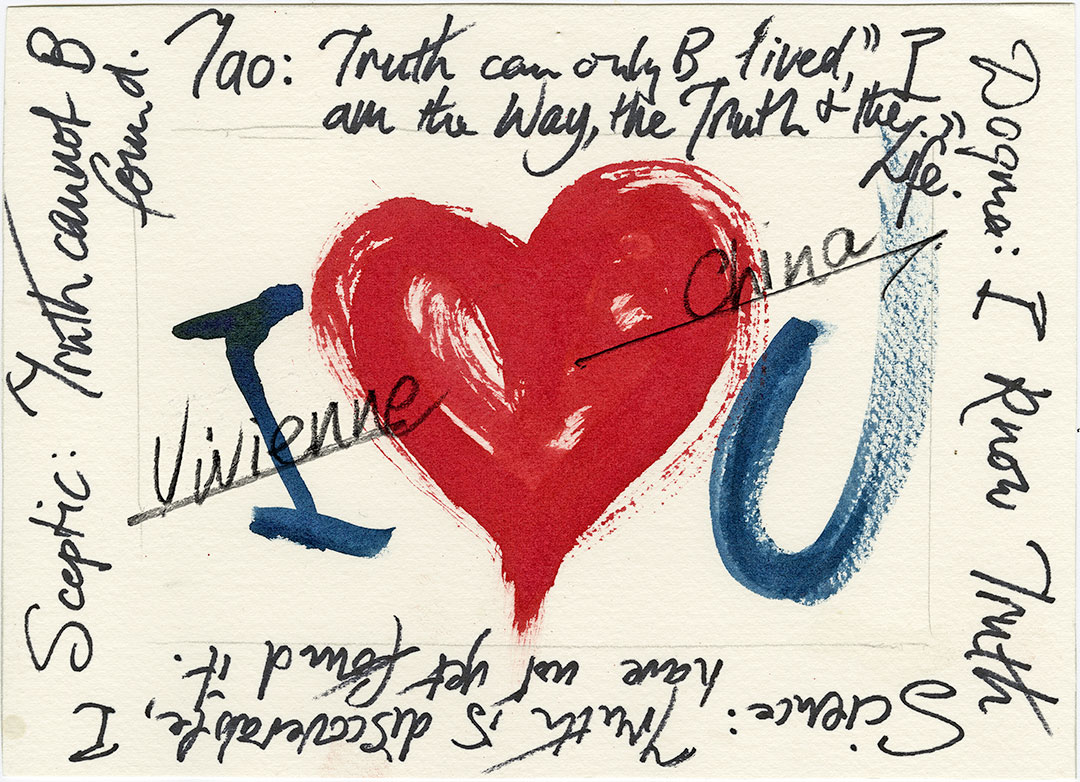 Tao: Truth can only B lived," I
am the Way, the Truth & the
Life."
Dogma: I Know Truth
Science: Truth is discoverable, I
have not yet found it.
Sceptic: Truth cannot B
found.
I U
Vivienne
China